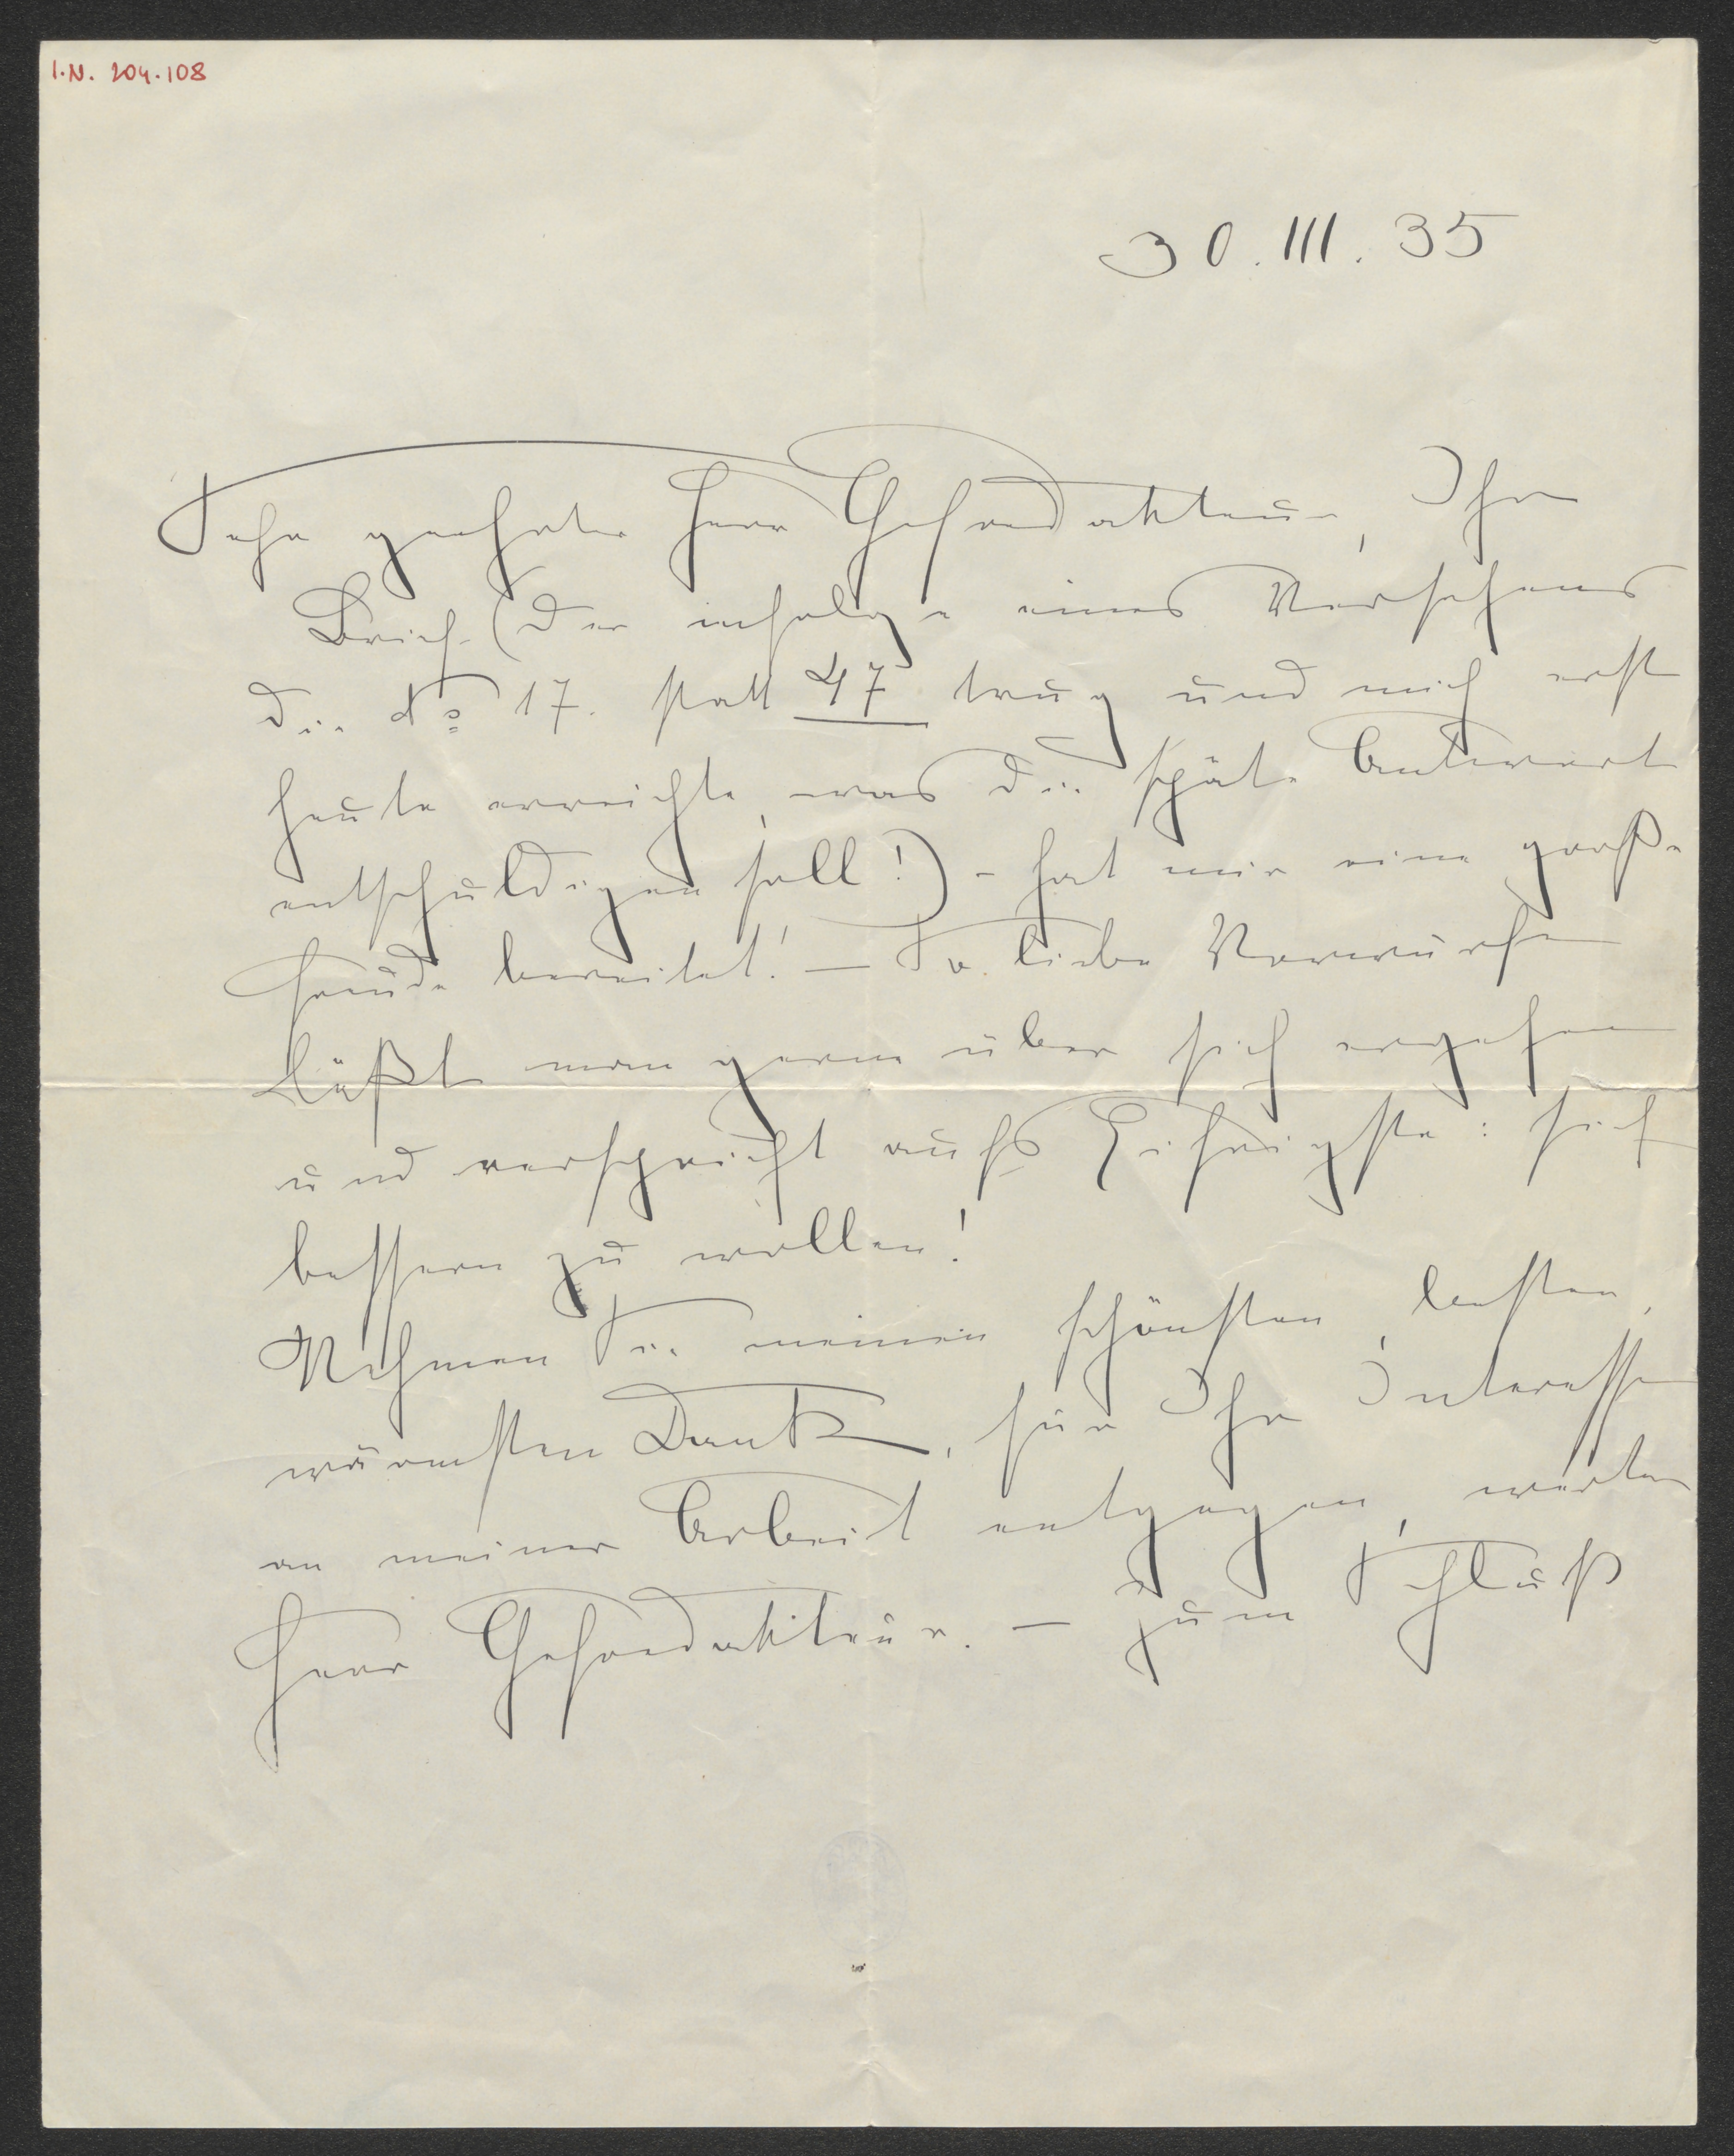 I.N. 204.108
30. III. 35
Sehr geehrter Herr Chefredakteur, Ihr
Brief (der infolge eines Versehens
die No 17. statt 47 trug und mich erst
heute erreichte, was die späte Antwort
entschuldigen soll!) - hat mir eine große
Freude bereitet! — So liebe Vorwürfe
läßt man gerne über sich ergehen
und verspricht aufs Eifrigste: sich
bessern zu wollen!
Nehmen Sie meinen schönsten, besten,
wärmsten Dank, für Ihr Interesse
an meiner Arbeit entgegen, werter
Herr Chefredakteur. — Zum Schluß